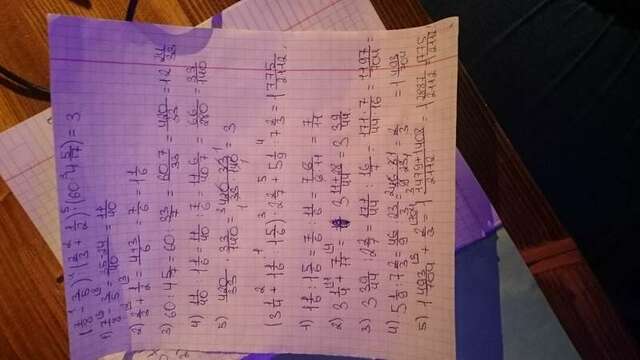 (7/8 - 3/5) · (2/3 + 1/2) · (60 : 4 5/7) = 3
1) 7/8 - 3/5 = 35-24/40 = 11/40
2) 2/3 + 1/2 = 4+3/6 = 7/6 = 1 1/6
3) 60 : 4 5/7 = 60 : 33/7 = 60·7/33 = 420/33 = 12 24/33
4) 11/40 : 1 1/6 = 11/40 : 7/6 = 11·6/40·7 = 66/280 = 33/140
5) 420/33 · 33/140 = 420·33/33·140 = 3
(3 1/4 + 1 1/6 : 1 5/6) : 2 2/7 + 5 1/9 : 7 2/3 = 1 775/2112
1) 1 1/6 : 1 5/6 = 7/6 : 11/6 = 7·6/6·11 = 7/11
2) 3 1/4 + 7/11 = 3 11+28/44 = 3 39/44
3) 3 39/44 : 2 2/7 = 171/44 : 16/7 = 171·7/44·16 = 1197/704 =
4) 5 1/9 : 7 2/3 = 46/9 : 23/3 = 2/3 = 1 493/704
5) 1 493/704 + 2/3 = 1 1479+1408/2112 = 1 2887/2112 = 1 775/2112